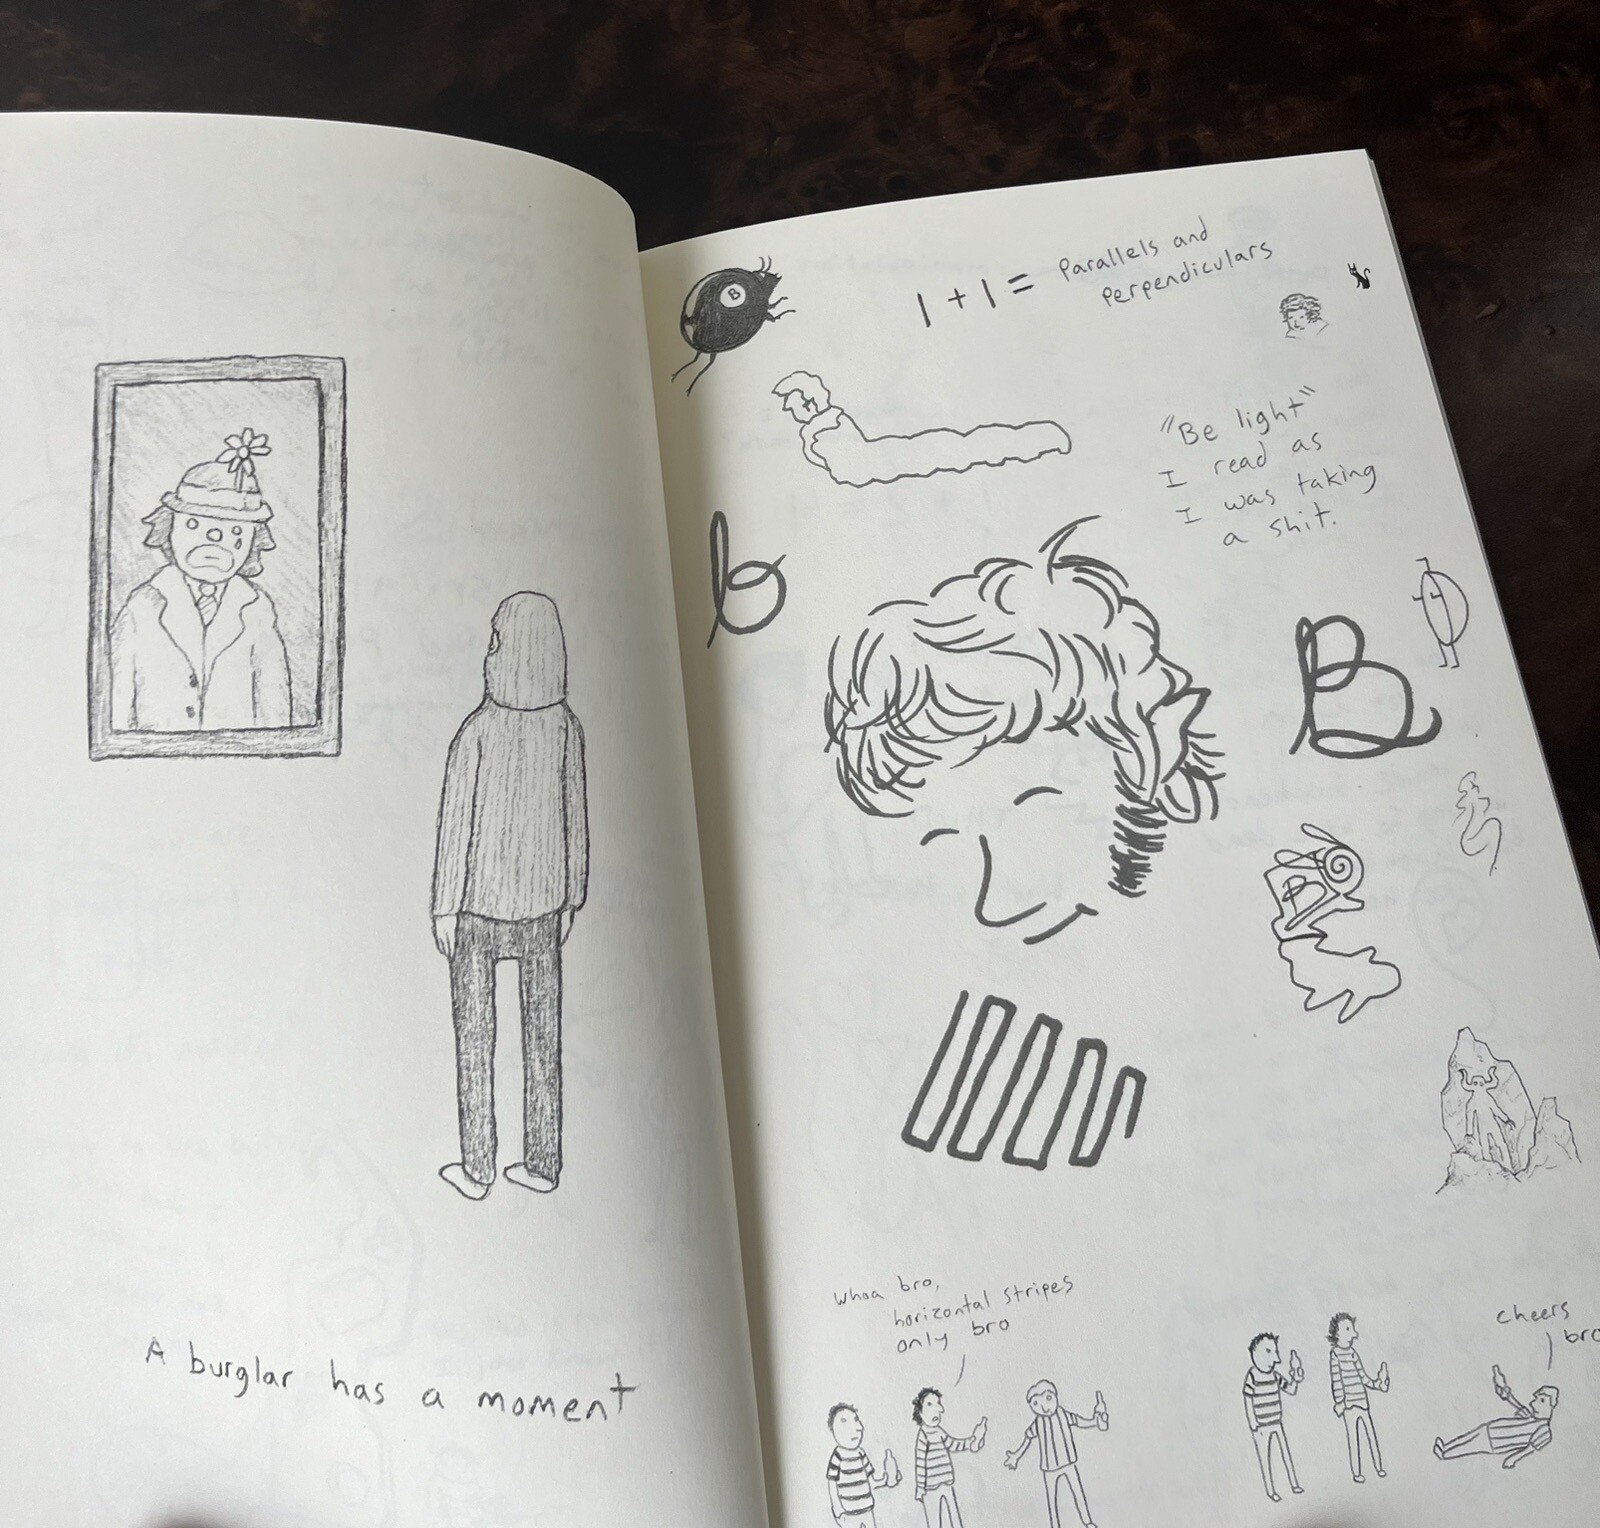 A burglar has a moment
B
1 + 1 = Parallels and
perpendiculars
"Be light"
I read as
I was taking
a shit.
b
B
B
whoa bro,
horizontal stripes
only bro
cheers
bro